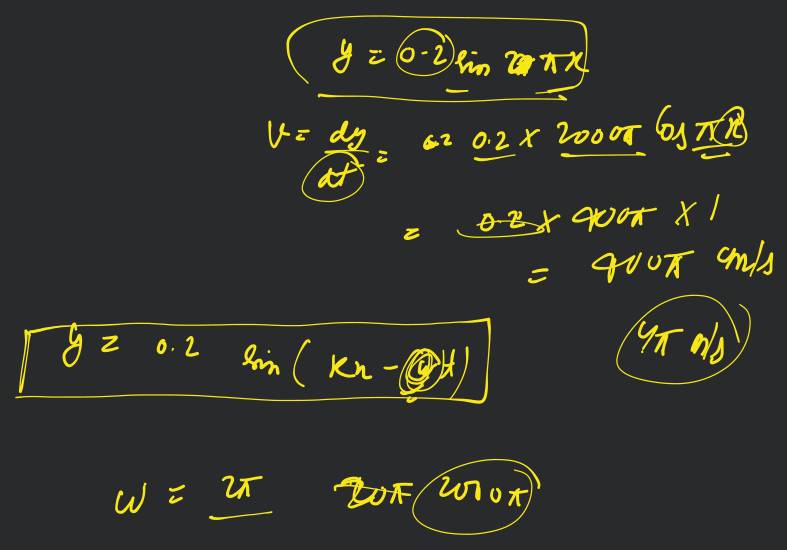 y = 0.2 sin πx
v = dy/dt = 0.2 × 2000π cos πx
= 0.2 × 400π × 1
= 400π cm/s
4π m/s
y = 0.2 sin ( kx - ωt)
ω = 2π 20π 2000π